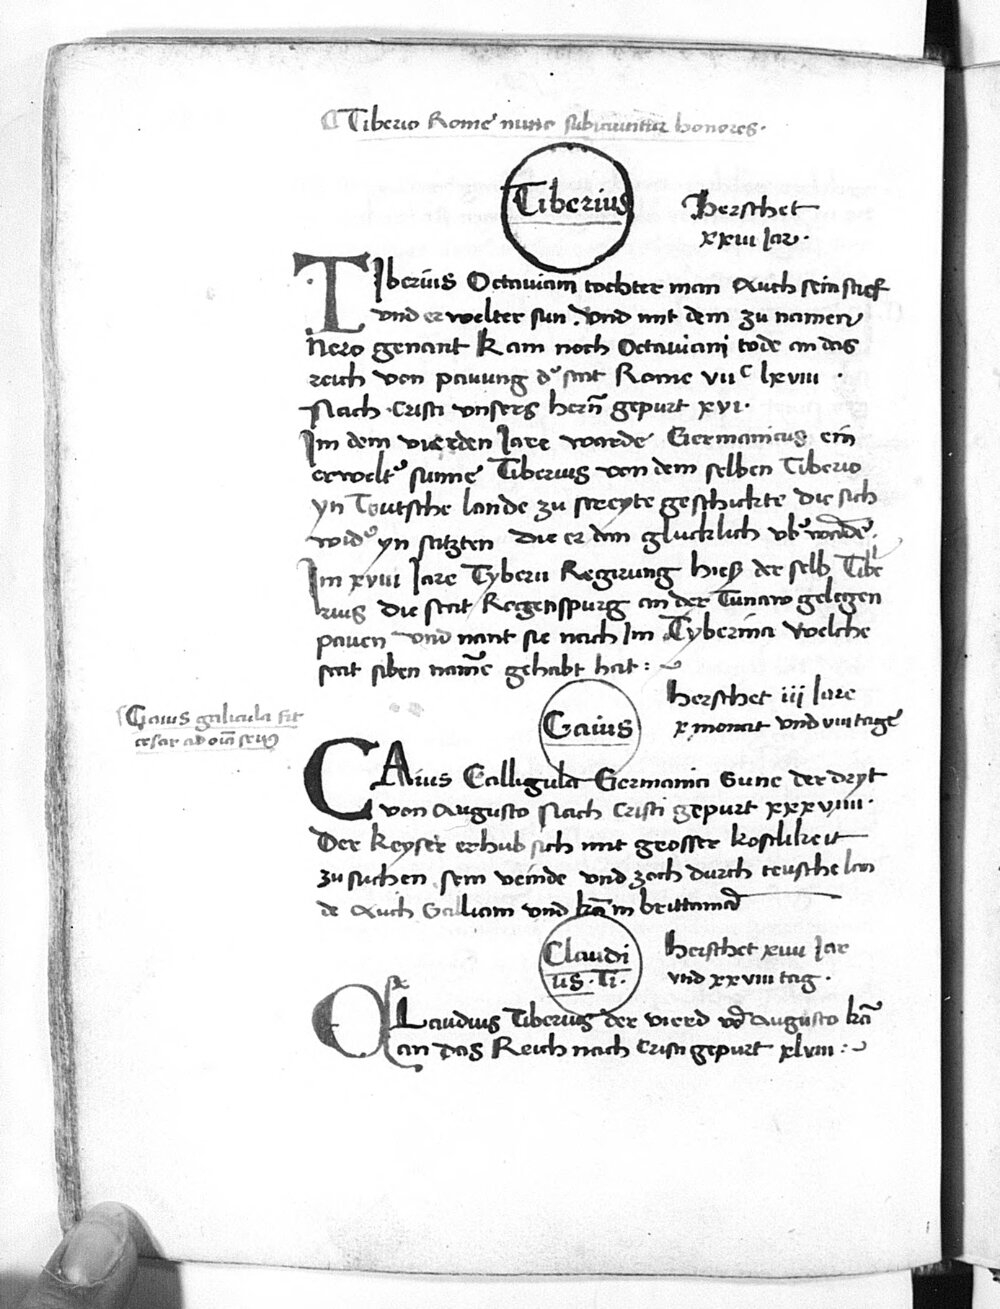 Tiberio Rome nunc subiciuntur honores.
Tiberius
Herschet
xxiii Jar.
Tiberius Octaviani tochter man Auch sein stief
und erwelter sun. Und mit dem zu namen
Nero genant Kam noch Octaviani tode an das
reich von pauung d' stat Rome viic lxviii .
Nach Cristi unsers hern̄ gepurt xvi.
Im dem vierden Jare warde Germanicus ein
erwelt' sune Tiberius von dem selben Tiberio
yn Teutsche lande zu streyte geschickte die sich
wid' yn satzten Die er dan glucklich
Im xviii Jare Tyberii Regirung hieß der selb Tibe
rius die stat Regenspurg an der Tunaw gelegen
pauen und nant sie nach Im Tyberina welche
stat siben name gehabt hat :
Gaius
herschet iii Jare
x monat und viii tage
Gaius galicula fit
cesar ad
CAius Calligula Germania Sune der dryt
von Augusto Nach Cristi gepurt xxxviiii.
Der Keyser erhub sich mit grosser kostlikeit
zu suchen sein veinde und zoch durch teusche lan
de Auch Galliam und kā in brittania
Claudi
us. Ti.
herschet xiiii Jar
und xxviii tag.
CLaudius Tiberius der vierd vō Augusto kā
an das Reich nach Cristi gepurt xlviii :